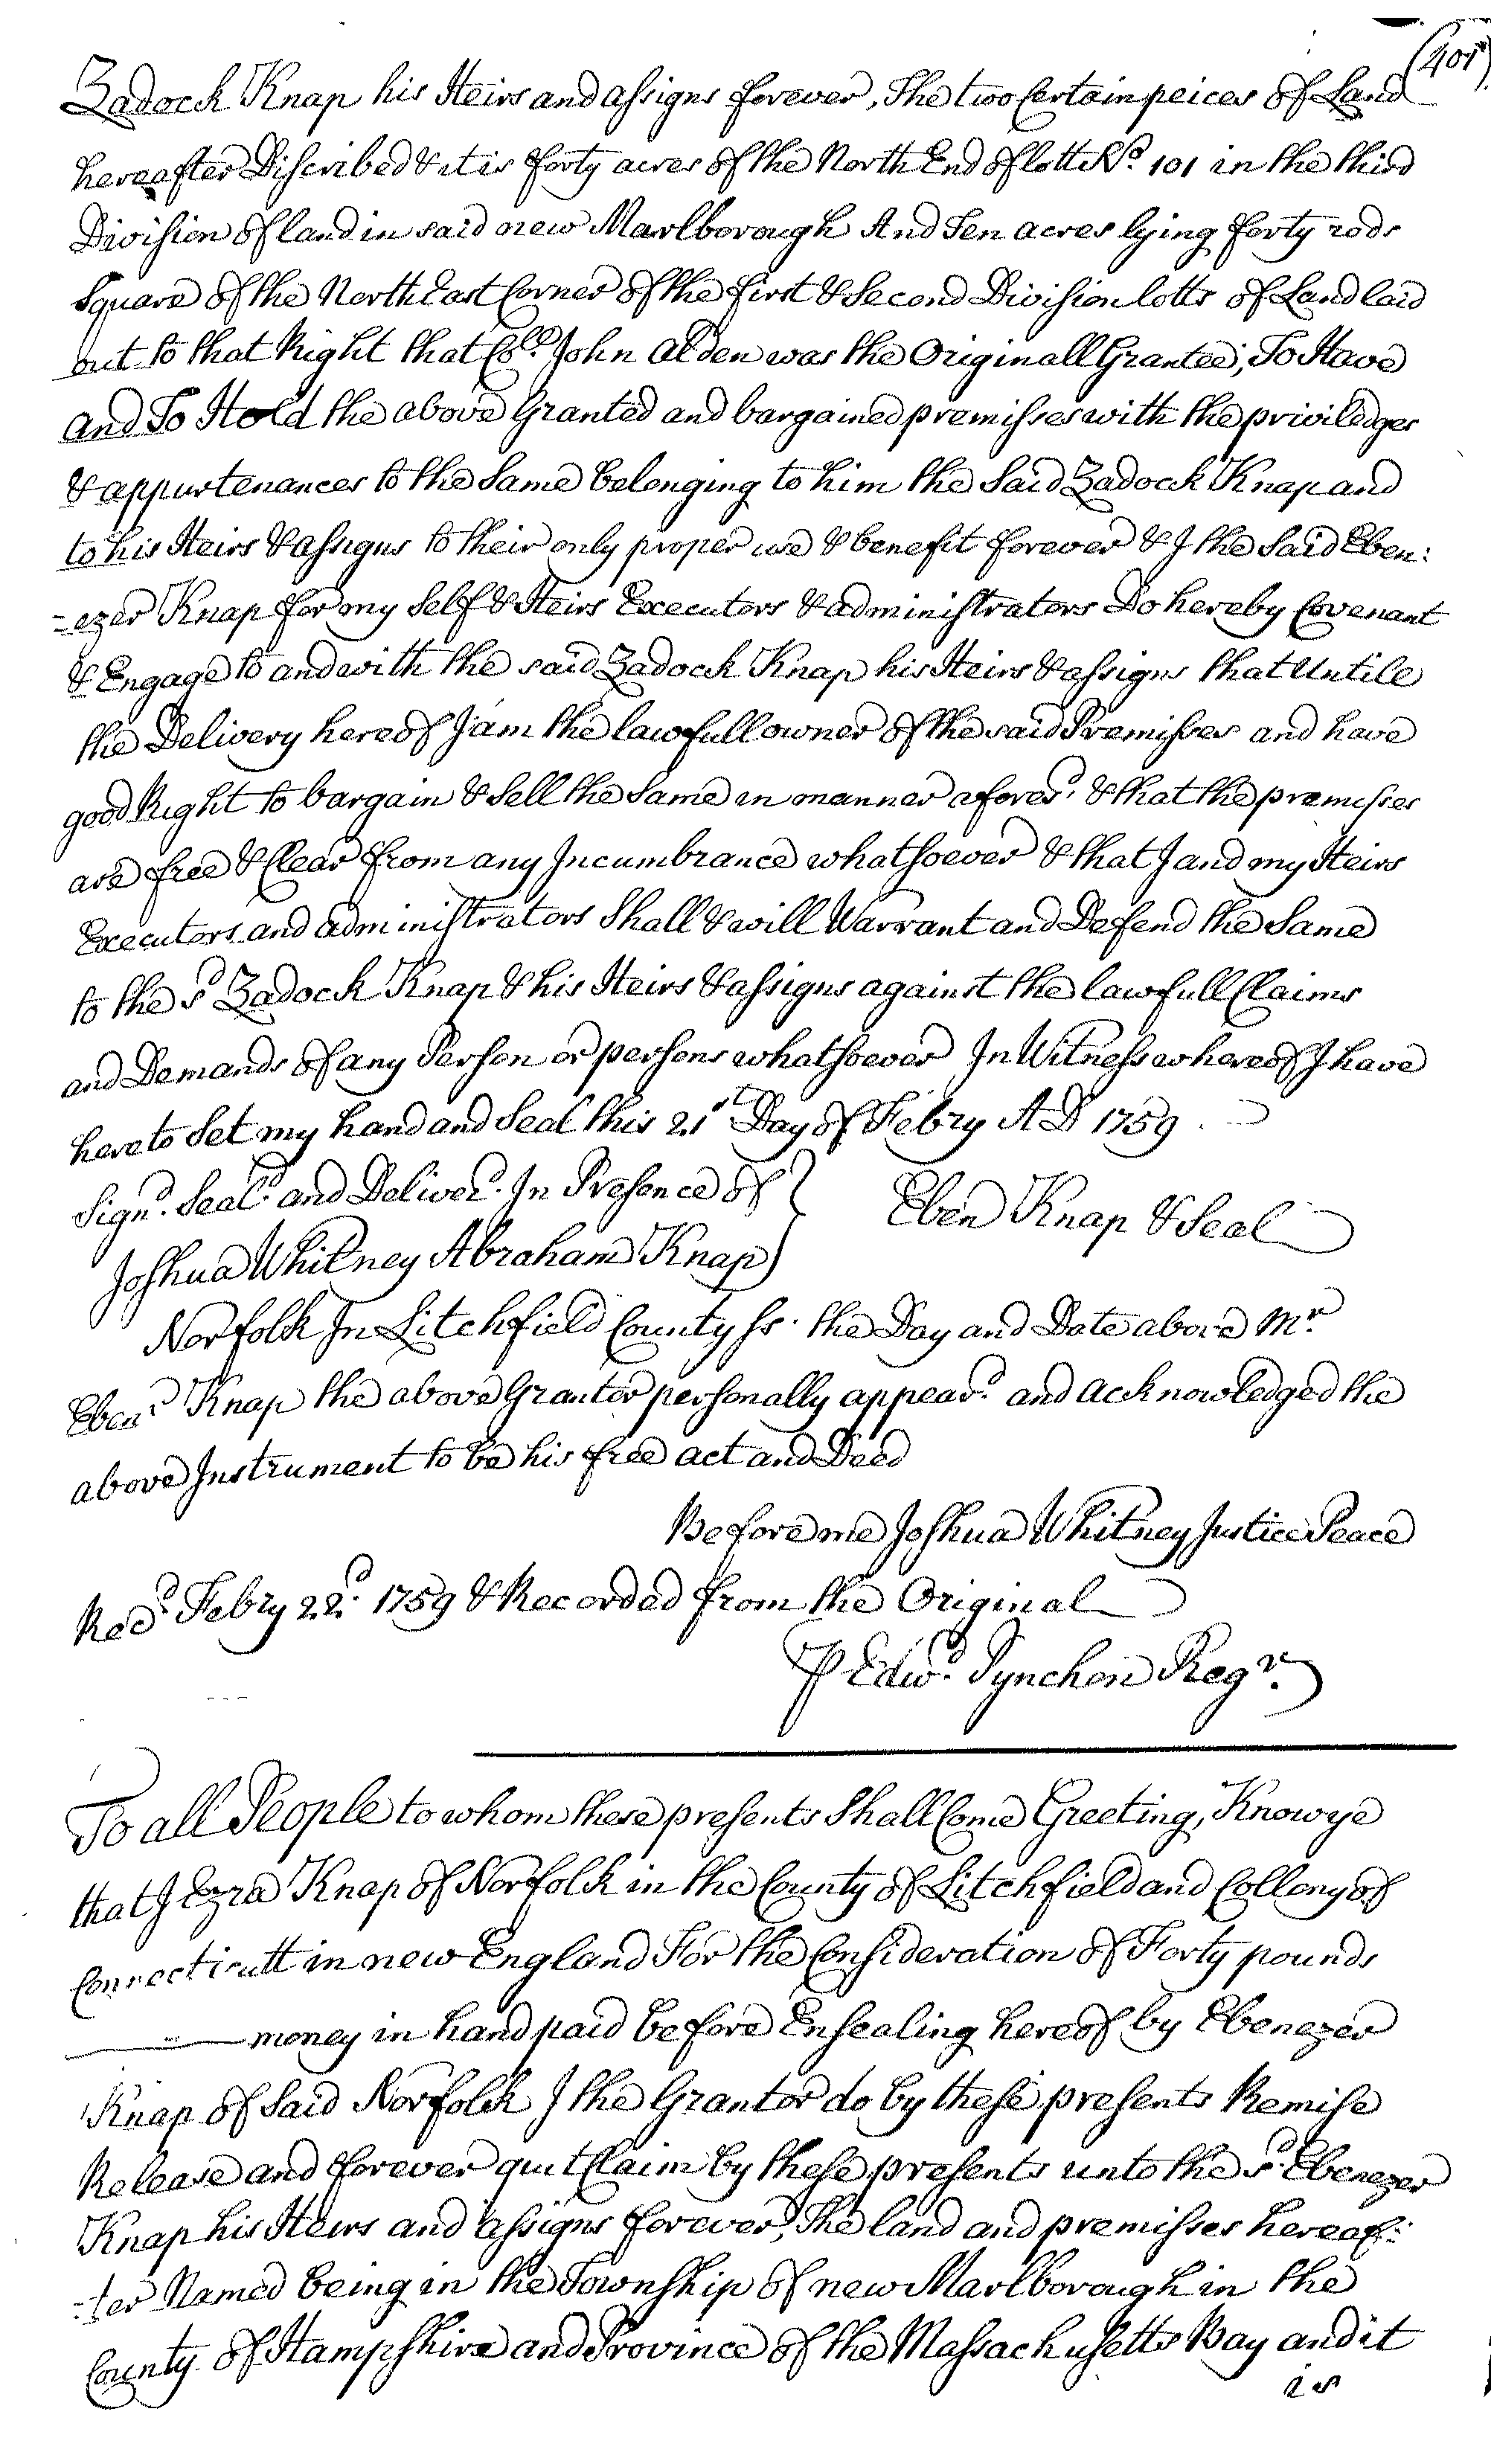 (401)
Zadock Knap his Heirs and assigns forever, The two Certain peices of Land
hereafter Discribed & it is forty acres of the North End of lott No. 101 in the third
Division of land in said new Marlborough And Ten acres lying forty rods
Square of the North East Corner of the first & Second Division lotts of Land laid
out to that Right that Coll. John Alden was the Originall Grantee, To Have
and To Hold the above Granted and bargained premisses with the priviledges
& appurtenances to the Same belonging to him the Said Zadock Knap and
to his Heirs & assigns to their only proper use & benefit forever & I the Said Eben:
-ezer Knap for my Self & Heirs Executors & administrators Do hereby Covenant
& Engage to and with the said Zadock Knap his Heirs & assigns that Untile
the Delivery hereof I am the lawfull owner of the said Premisses and have
good Right to bargain & Sell the Same in manner afored. & that the premisses
are free & Clear from any Incumbrance whatsoever & that I and my Heirs
Executors and administrators Shall & will Warrant and Defend the Same
to the sd Zadock Knap & his Heirs & assigns against the lawfull Claims
and Demands of any Person or persons whatsoever In Witness whereof I have
hereto Set my hand and Seal this 21st Day of Febry A D 1759
Signd. Seald. and Deliverd. In Presence of } Eben Knap & Seal
Joshua Whitney Abraham Knap
Norfolk In Litchfield County ss. the Day and Date above Mr.
Ebenr. Knap the above Grantor personally appeard. and acknowledged the
above Instrument to be his free act and Deed
Before me Joshua Whitney Justice Peace
Recd. Febry 22d. 1759 & Recorded from the Original
P Edwd. Pynchon Regr.
To all People to whom these presents Shall Come Greeting, Know ye
that I Ezra Knap of Norfolk in the County of Litchfield and Collony of
Connecticutt in new England For the Consideration of Forty pounds
money in hand paid before Ensealing hereof by Ebenezer
Knap of Said Norfolk I the Grantor do by these presents Remise
Release and forever quit Claim by these presents unto the sd. Ebenezer
Knap his Heirs and assigns forever, The land and premisses hereaf:
-ter Named being in the Township of new Marlborough in the
County of Hampshire and Province of the Massachusetts Bay and it
is